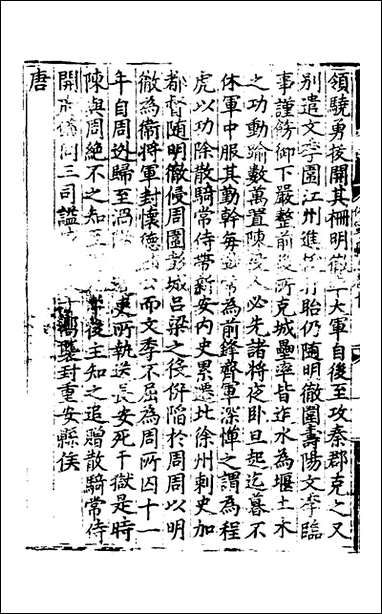 領驍勇拔開其柵明徹大軍自後至攻秦郡克之又
別遣文季圍涇州進攻盱眙仍隨明徹圍壽陽文季臨
事謹飭御下嚴整前後所克城壘率皆迮水為堰土木
之功動踰數萬置陳役人必先諸將夜臥旦起迄暮不
休軍中服其勤幹每為前鋒齊軍深憚之謂為程
虎以功除散騎常侍帶新安內史累遷北徐州刺史加
都督隨明徹侵周圍彭城呂梁之役併陷於周周以明
徹為衞將軍封懷德公而文季不屈為周所囚十一
年自周逃歸至渦吏所執送長安死于獄是時
陳與周絕不之知至後主知之追贈散騎常侍
開府儀同三司謚嚮襲封重安縣侯
唐